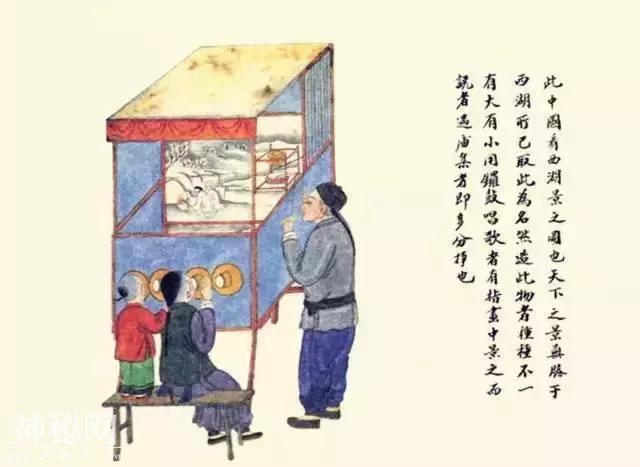 此中國看西湖景之圖也天下之景無勝于
西湖所已取此為名然造此物者種種不一
有大有小用鑼鼓唱歌者有指畫中景之而
說者遇庙集者即多分掙也
神秘网